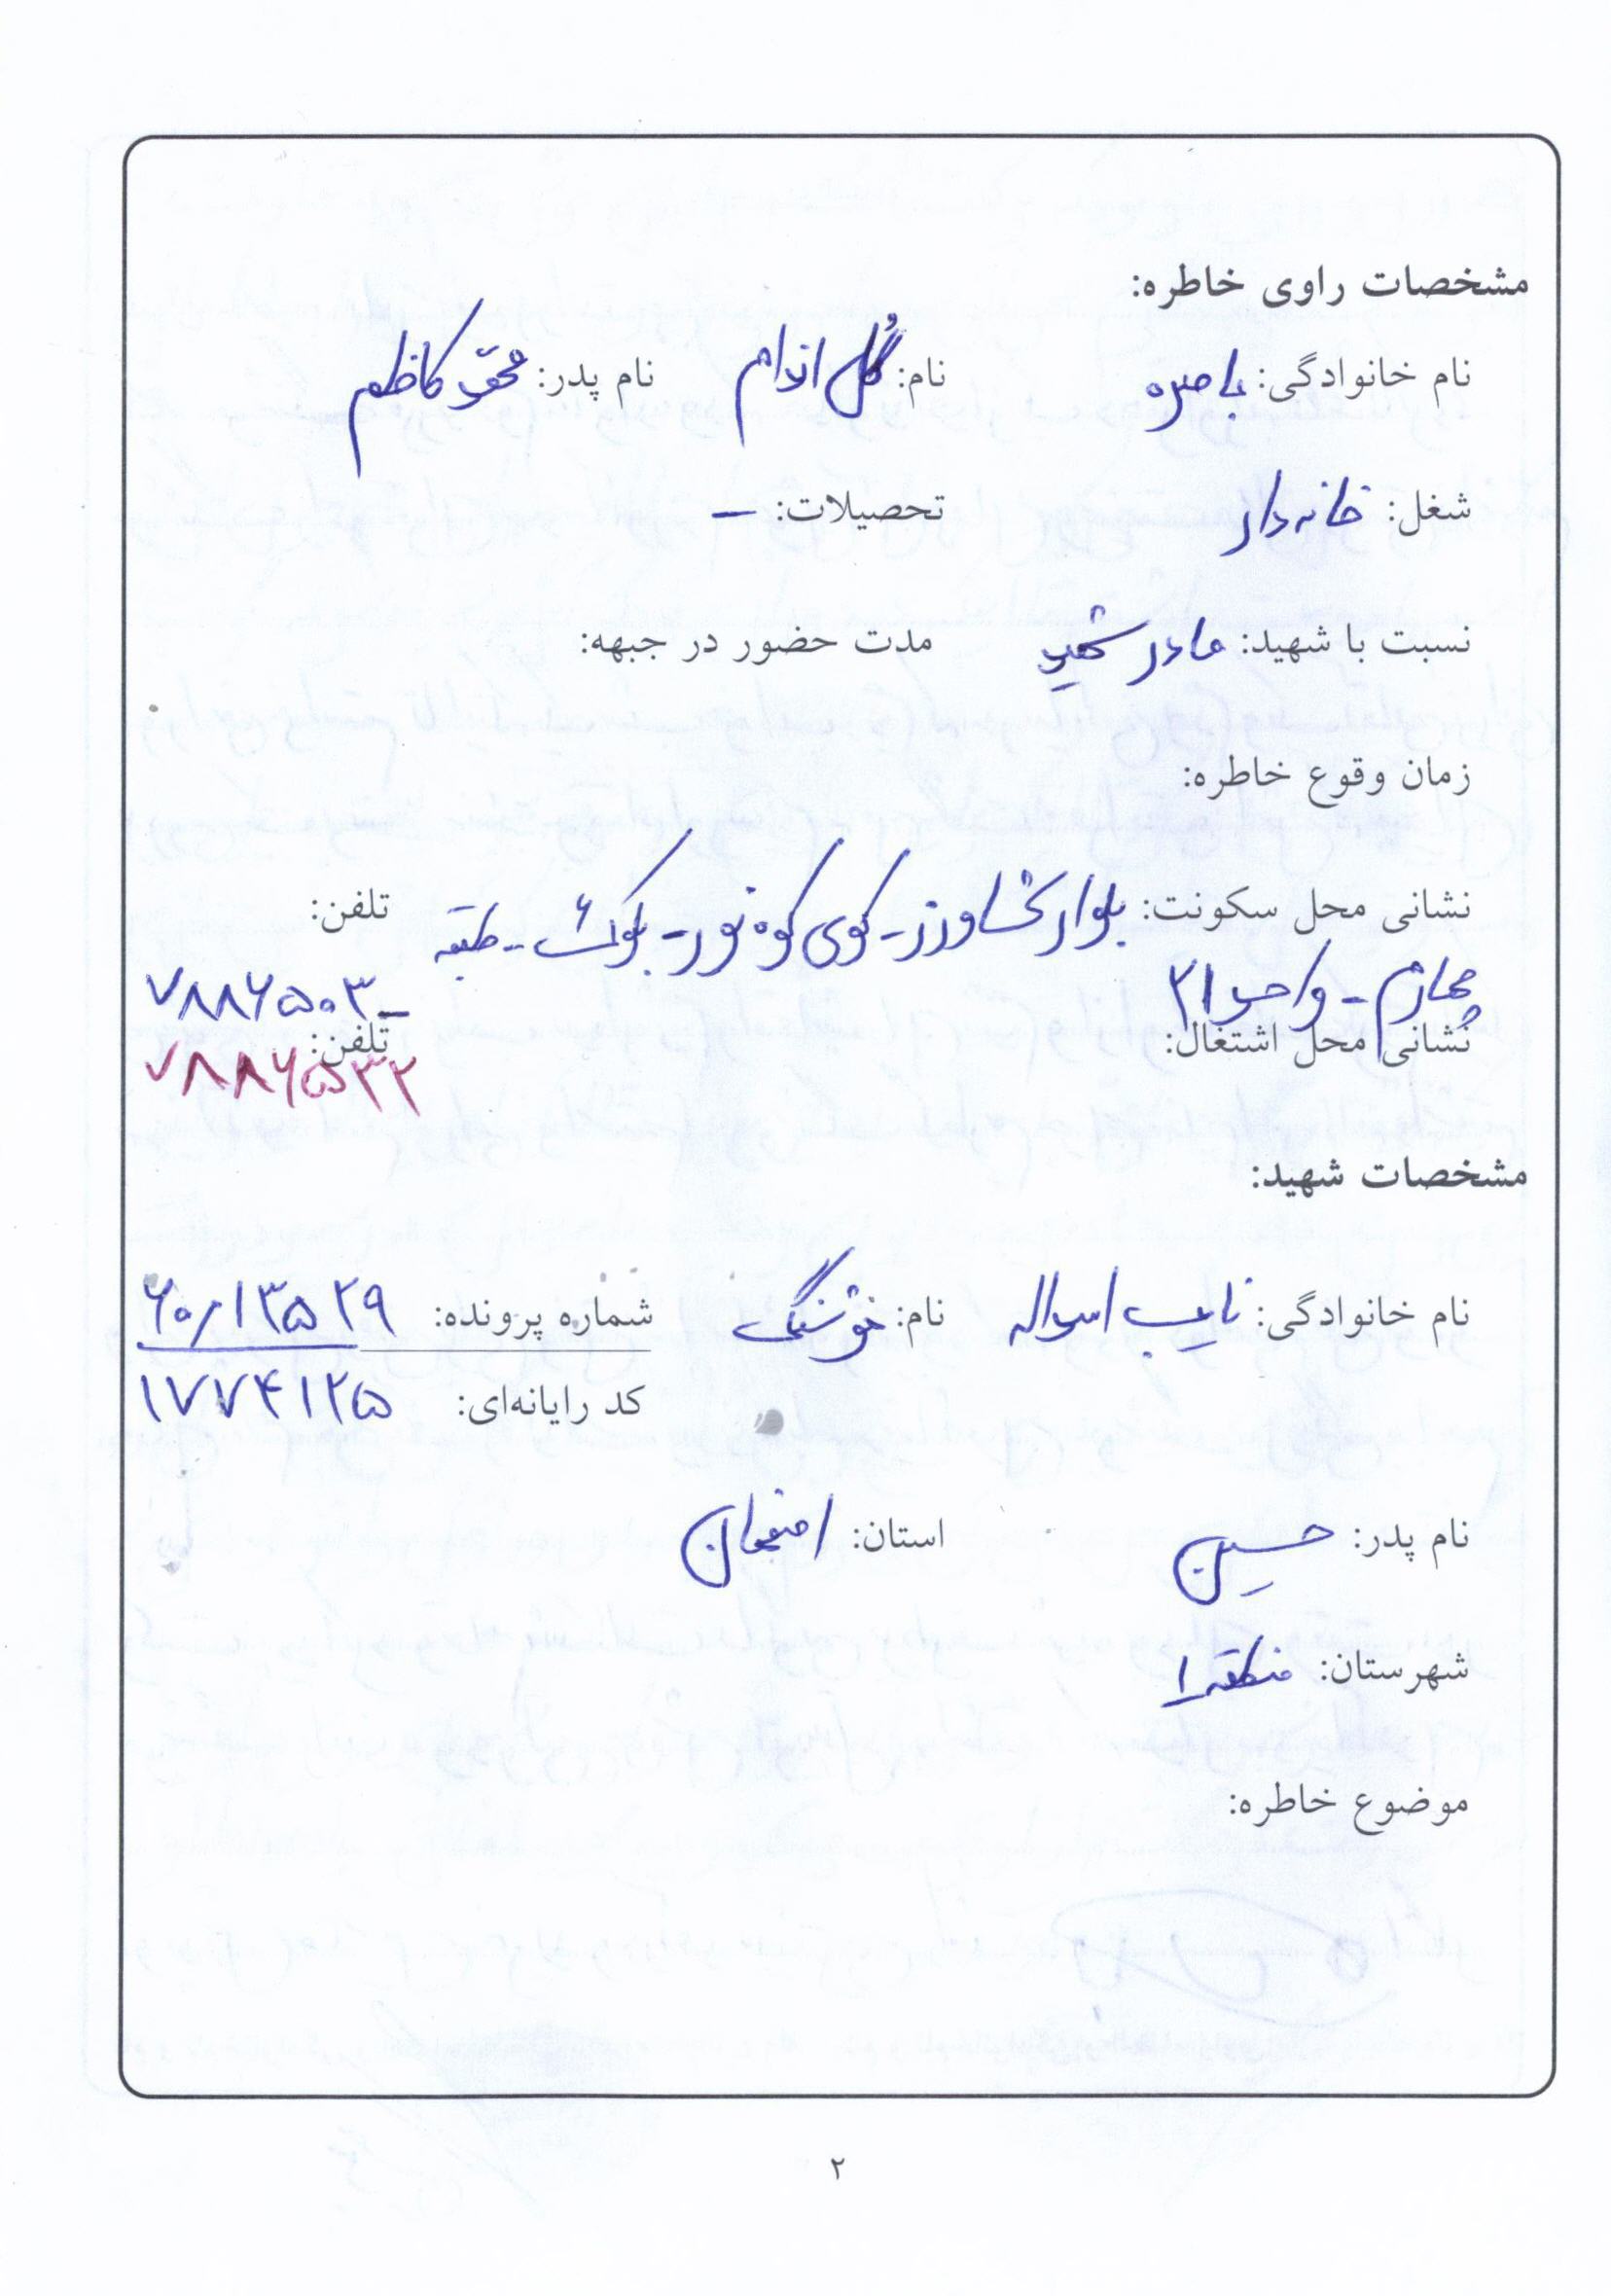 مشخصات راوی خاطره:
نام خانوادگی: باصره نام: گُل اندام نام پدر: محمد کاظم
شغل: خانه دار تحصیلات: –
نسبت با شهید: مادر شهید مدت حضور در جبهه:
زمان وقوع خاطره:
نشانی محل سکونت: بلوار کشاورز - کوی کوه نور - بلوک ۶ - طبقه تلفن:
چهارم - واحد ۲۱ ۷۸۸۶۵۰۳ –
نشانی محل اشتغال: تلفن:
۷۸۸۶۵۳۲
مشخصات شهید:
نام خانوادگی: نایب اسداله نام: خوشنگ شماره پرونده: ۶۰/۱۳۵۲۹
کد رایانه‌ای: ۱۷۷۴۱۲۵
نام پدر: حسین استان: اصفهان
شهرستان: منطقه ۱
موضوع خاطره:
۲